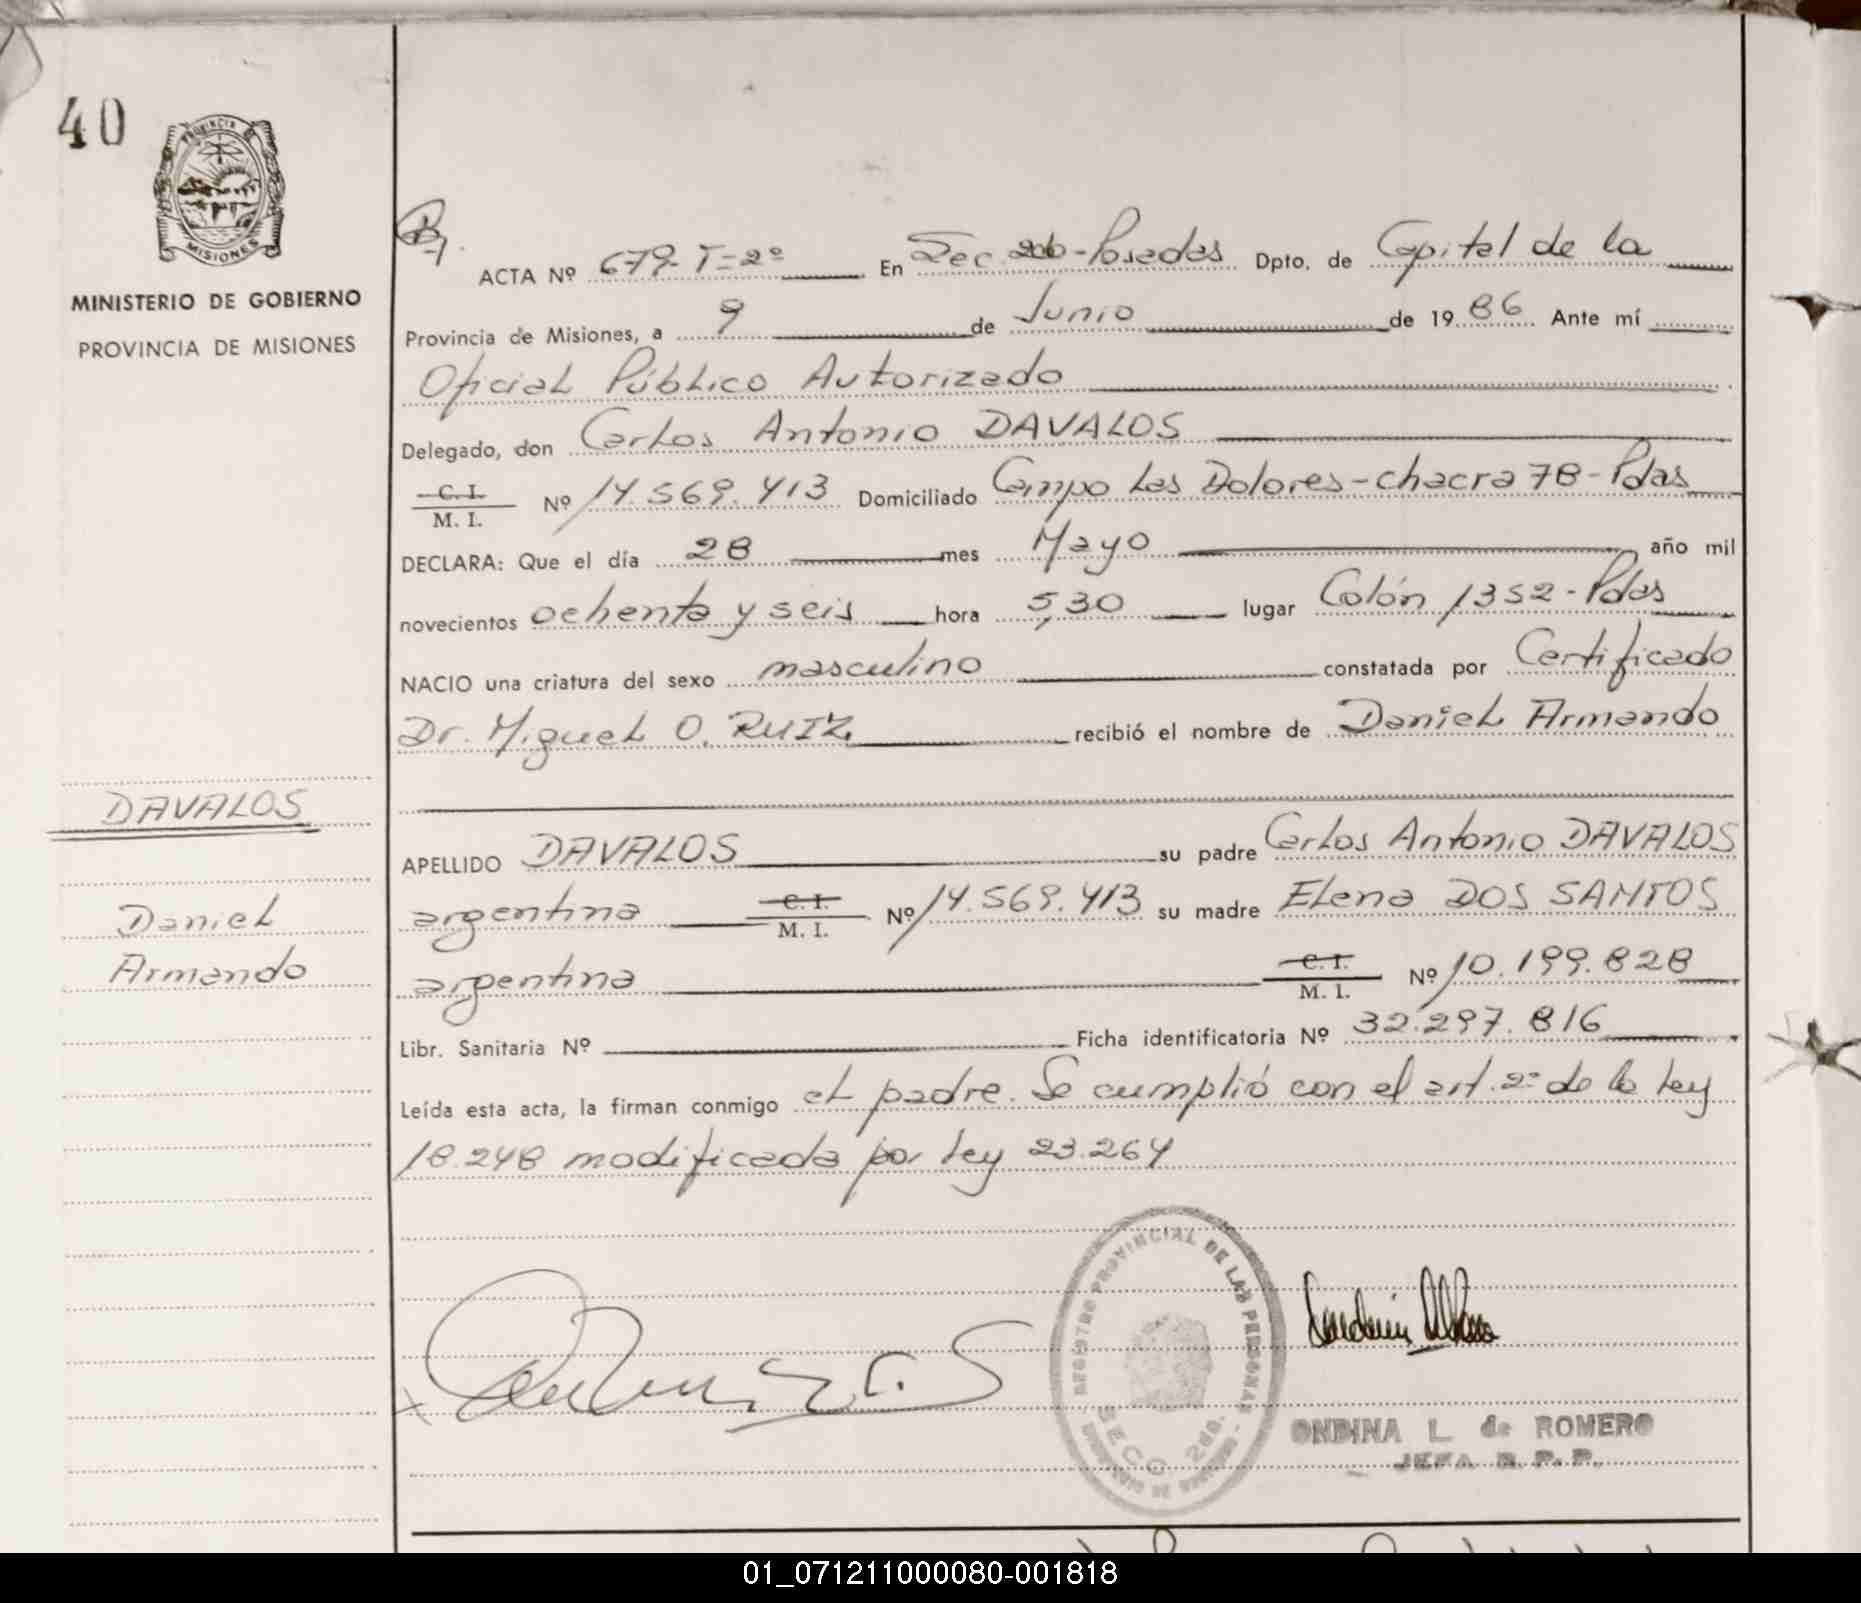 40
PROVINCIA DE
MISIONES
MINISTERIO DE GOBIERNO
PROVINCIA DE MISIONES
DAVALOS
Daniel
Armando
ACTA Nº 679-T=2º En Sec. 2da-Posadas Dpto. de Capital de la
Provincia de Misiones, a 9 de Junio de 1986 Ante mí
Oficial Público Autorizado
Delegado, don Carlos Antonio DAVALOS
C. I.
M. I. Nº 14.569.413 Domiciliado Campo Las Dolores-chacra 78-Pdas
DECLARA: Que el día 28 mes Mayo año mil
novecientos ochenta y seis hora 5,30 lugar Colón 1352-Pdas
NACIO una criatura del sexo masculino constatada por Certificado
Dr. Miguel O. RUIZ recibió el nombre de Daniel Armando
APELLIDO DAVALOS su padre Carlos Antonio DAVALOS
argentina C. I. M. I. Nº 14.569.413 su madre Elena DOS SANTOS
argentina C. I. M. I. Nº 10.199.828
Libr. Sanitaria Nº Ficha identificatoria Nº 32.297.816
Leída esta acta, la firman conmigo el padre. Se cumplió con el art. 2º de la Ley
18.248 modificada por Ley 23.264
REGISTRO PROVINCIAL DE LAS PERSONAS
SECC. 2da.
ONDINA L. de ROMERO
JEFA R. P. P.
01_071211000080-001818